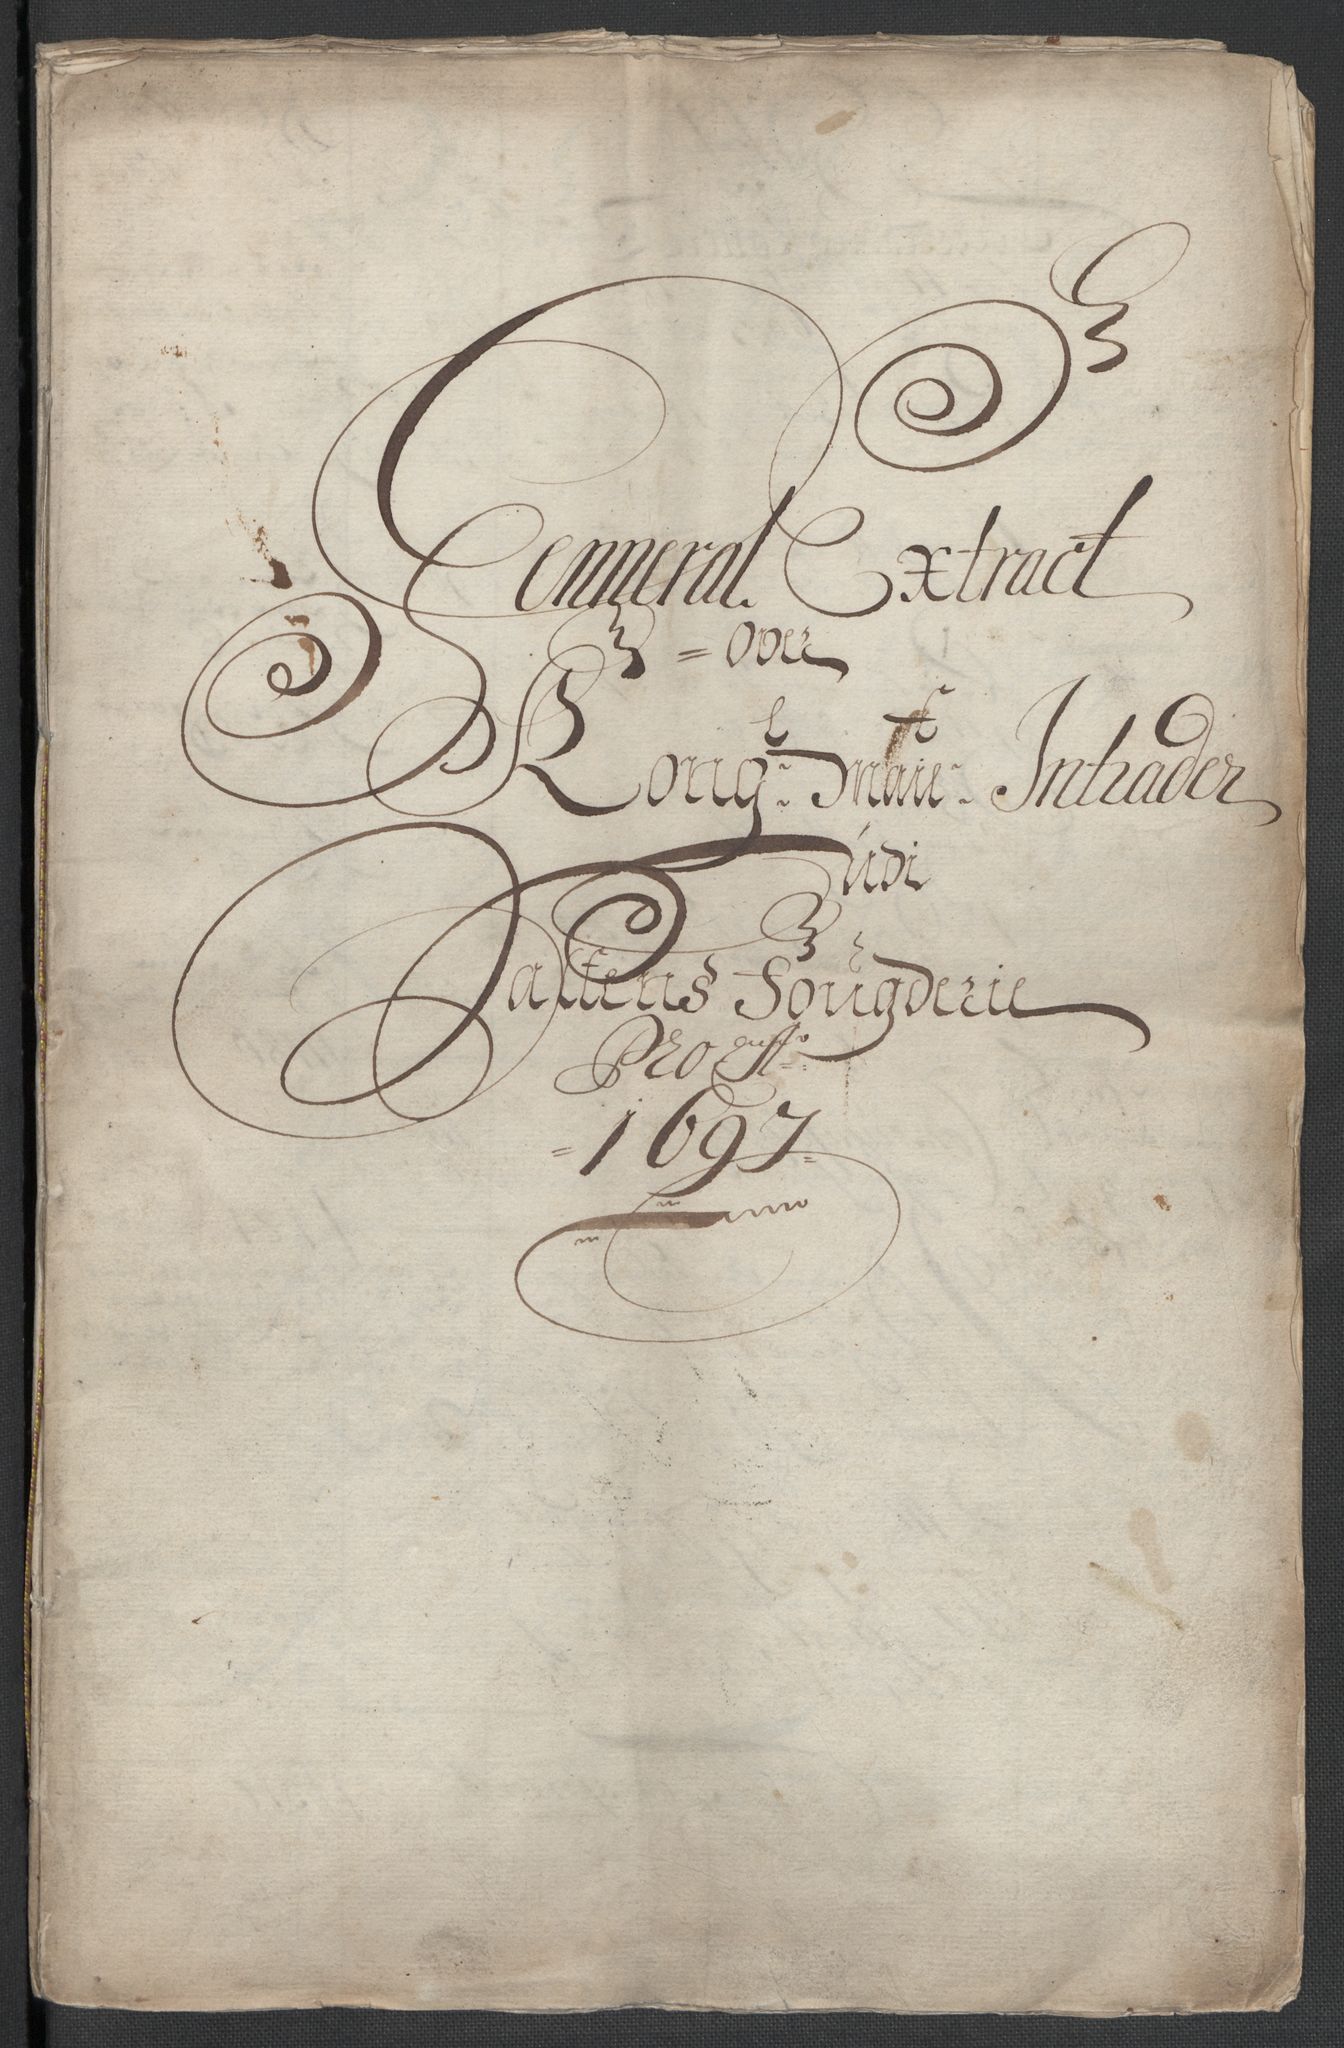 Genneral Extract
= Over
Kong:l Maÿe:t Intrader
udi
Saltens Fougderie
Pro
= 1697 =
Anno